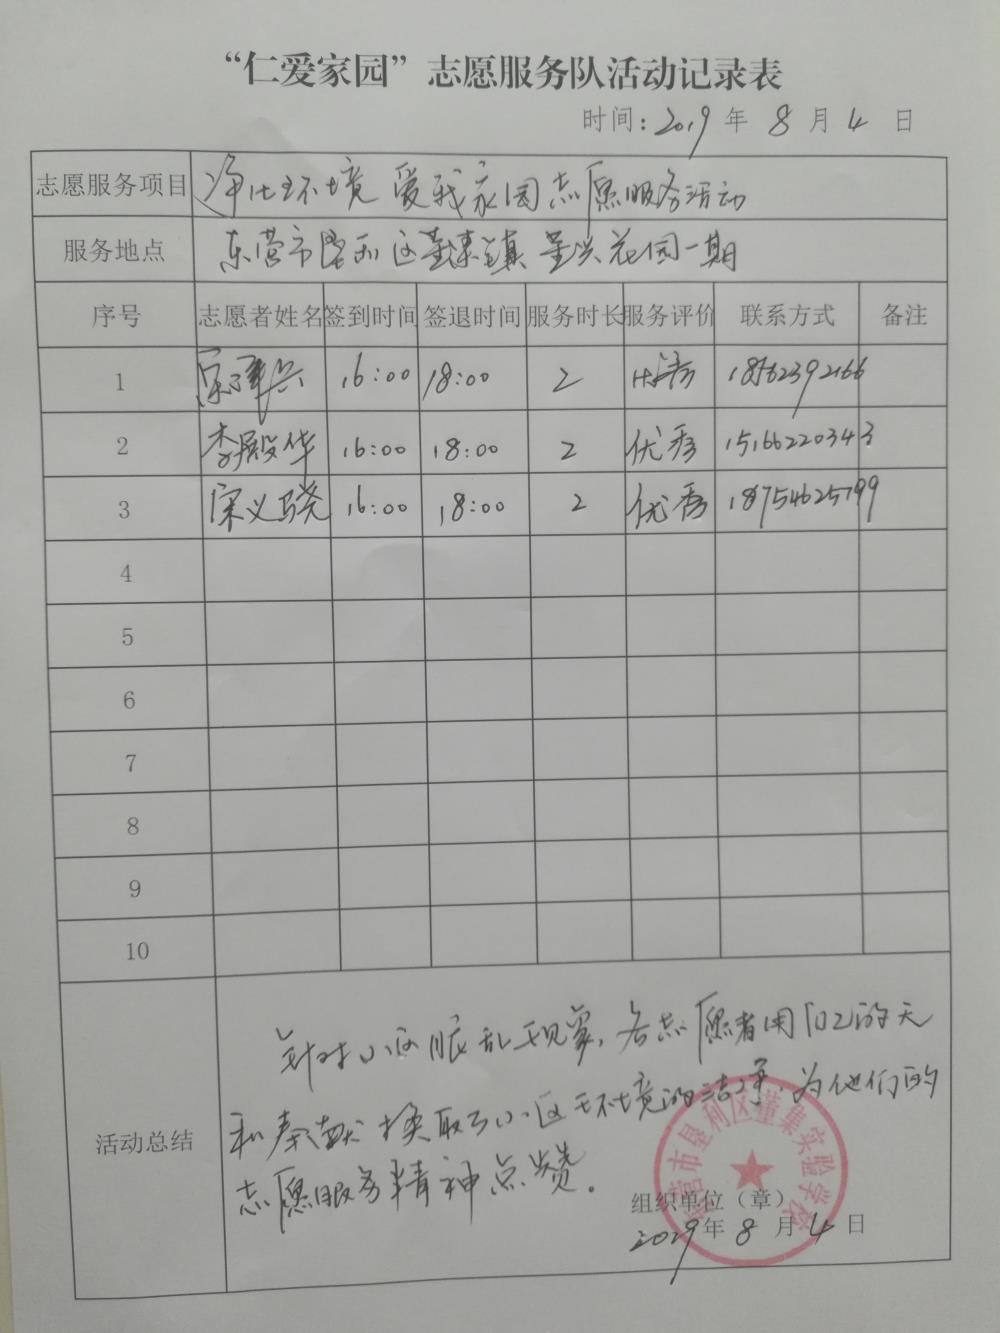 “仁爱家园”志愿服务队活动记录表
时间：2019 年 8 月 4 日
志愿服务项目 净化环境 爱我家园志愿服务活动
服务地点 东营市垦利区董集镇 呈兴花园一期
序号 志愿者姓名 签到时间 签退时间 服务时长 服务评价 联系方式 备注
1 兴 16:00 18:00 2 优秀 18562392166
2 李殿华 16:00 18:00 2 优秀 15166220343
3 宋义骁 16:00 18:00 2 优秀 18754625799
4
5
6
7
8
9
10
针对小区脏乱现象，各志愿者用自己的
和奉献换取了小区环境的洁净，为他们的
活动总结
志愿服务精神点赞。
组织单位（章）
2019年 8 月 4 日
东营市垦利区董集实验学校